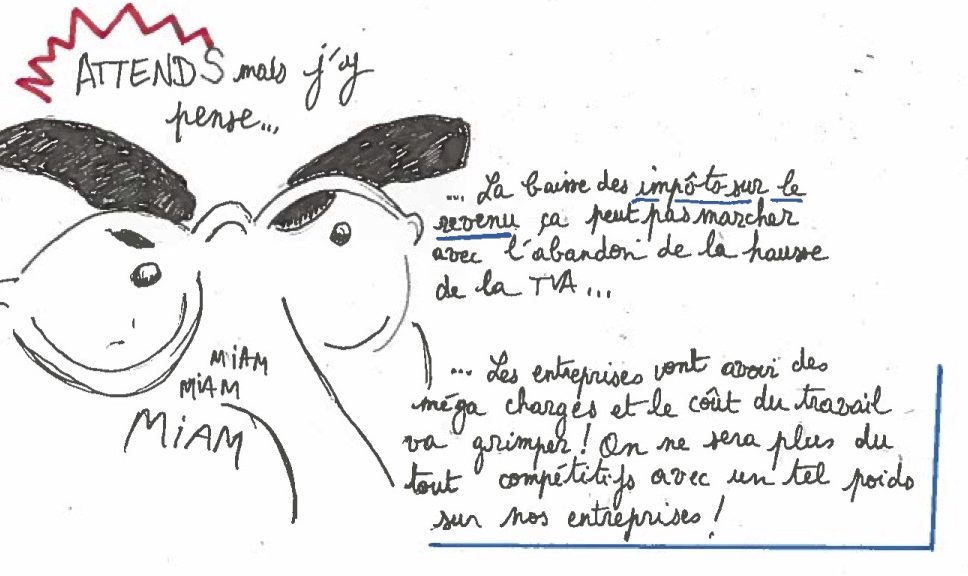 ATTENDS mais j'y
pense...
... La baisse des impôts sur le
revenu ça peut pas marcher
avec l'abandon de la hausse
de la TVA...
MiAM
MiAM
MiAM
... Les entreprises vont avoir des
méga charges et le coût du travail
va grimper! On ne sera plus du
tout compétitifs avec un tel poids
sur nos entreprises!